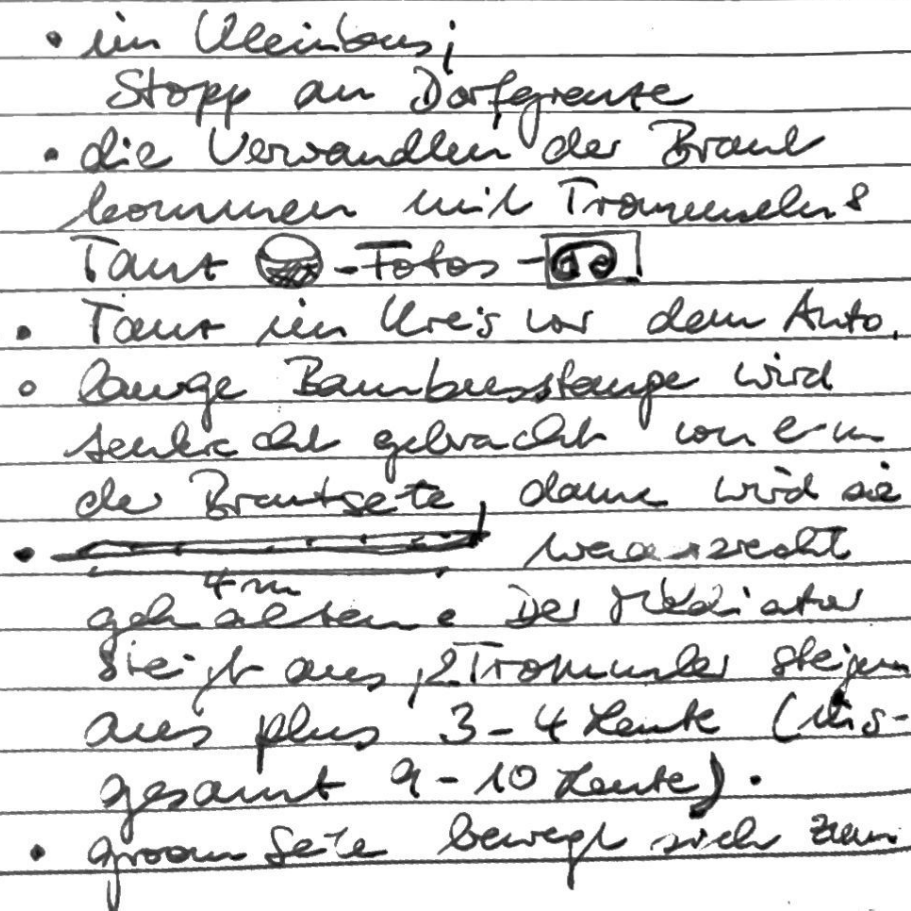 • im Kleinbus;
Stopp an Dorfgrenze
• die Verwandten der Braut
kommen mit Trommeln &
Tanz - Fotos -
• Tanz im Kreis vor dem Auto.
• lange Bambusstange wird
senkrecht gebracht von
der Brautseite, dann wird sie
• waagrecht
4 m
gehalten. Der Mediator
steigt aus, 2 Trommler steigen
aus plus 3-4 Leute (ins-
gesamt 9-10 Leute).
• groom Seite bewegt sich zum